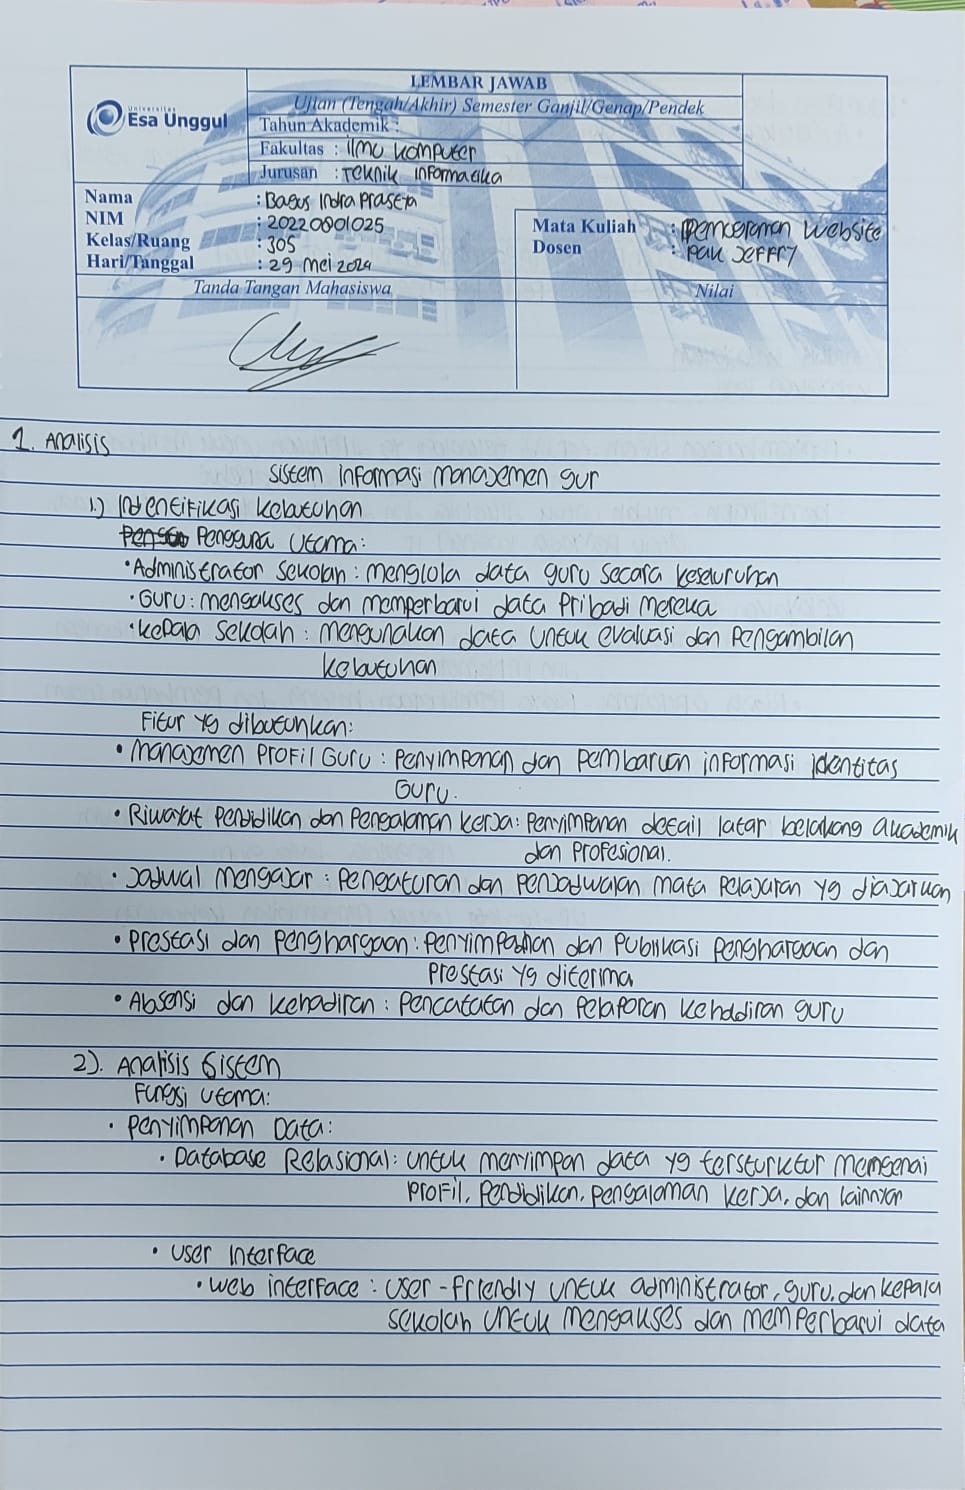 LEMBAR JAWAB
Universitas
Esa Unggul
Ujian (Tengah/Akhir) Semester Ganjil/Genap/Pendek
Tahun Akademik :
Fakultas : Ilmu Komputer
Jurusan : Teknik Informatika
Nama : Bagus Indra Prasetya
NIM : 20220801025
Kelas/Ruang : 305
Hari/Tanggal : 29 Mei 2024
Mata Kuliah : Website
Dosen : Pak Jeffry
Tanda Tangan Mahasiswa
Nilai
1. Analisis
Sistem Informasi Manajemen gur
1.) Identifikasi kebutuhan
Pengguna Utama:
• Administrator Sekolah : menglola data guru secara keseluruhan
• Guru : mengakses dan memperbarui data Pribadi mereka
• Kepala Sekolah : mengunakan data untuk evaluasi dan Pengambilan
kebutuhan
Fitur yg dibutuhkan:
• Manajemen Profil Guru : Penyimpanan dan Pembaruan informasi identitas
Guru.
• Riwayat Pendidikan dan Pengalaman kerja : Penyimpanan detail latar belakang akademik
dan Profesional.
• Jadwal Mengajar : Pengaturan dan Penjadwalan mata Pelajaran yg diajarkan
• Prestasi dan Penghargaan : Penyimpanan dan Publikasi Penghargaan dan
Prestasi yg diterima
• Absensi dan kehadiran : Pencatatan dan Pelaporan kehadiran guru
2). Analisis Sistem
Fungsi utama:
• Penyimpanan Data:
• Database Relasional : untuk menyimpan data yg tersturktur mengenai
Profil, Pendidikan, Pengalaman kerja, dan lainnya
• User Interface
• Web interface : user-friendly untuk administrator, guru, dan kepala
sekolah untuk mengakses dan memperbarui data